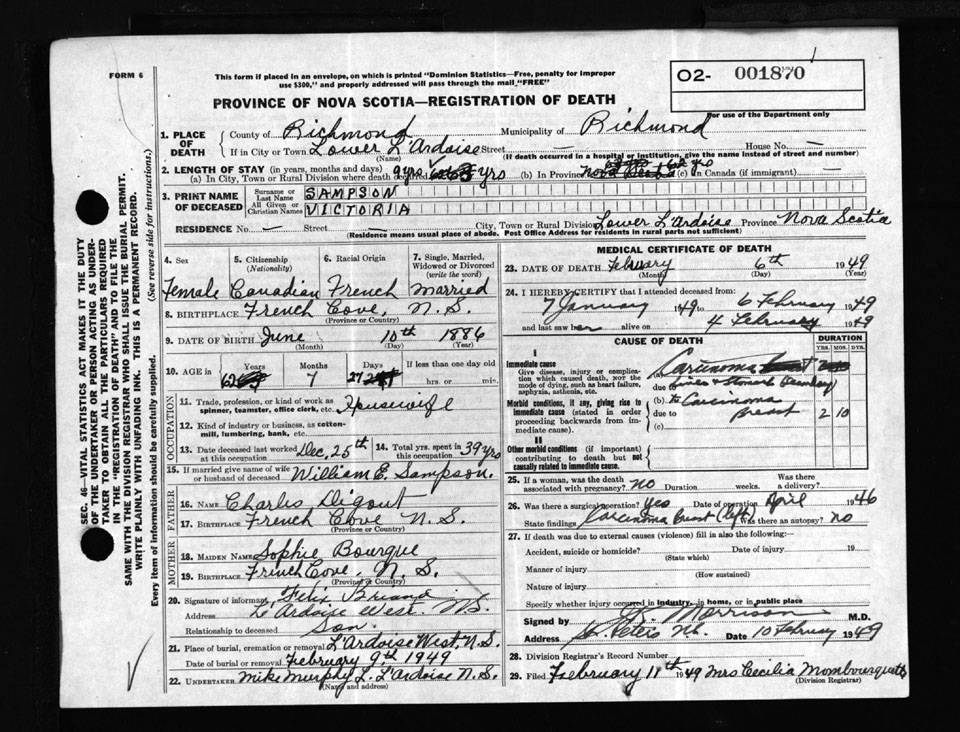 FORM 6
This form if placed in an envelope, on which is printed "Dominion Statistics—Free, penalty for improper
use $300," and properly addressed will pass through the mail "FREE"
O2- 001870
PROVINCE OF NOVA SCOTIA—REGISTRATION OF DEATH
For use of the Department only
1. PLACE OF DEATH
County of Richmond Municipality of Richmond
If in City or Town Lower L'Ardoise Street — House No. —
(Name) (If death occurred in a hospital or institution, give the name instead of street and number)
2. LENGTH OF STAY (in years, months and days)
(a) In City, Town or Rural Division where death occurred yrs (b) In Province Nova Scotia yrs (c) In Canada (if immigrant) —
3. PRINT NAME OF DECEASED
Surname or Last Name SAMPSON
All Given or Christian Names VICTORIA
RESIDENCE No. — Street — City, Town or Rural Division Lower L'Ardoise Province Nova Scotia
(Residence means usual place of abode. Post Office Address for residents in rural parts not sufficient)
4. Sex Female
5. Citizenship (Nationality) Canadian
6. Racial Origin French
7. Single, Married, Widowed or Divorced (write the word) Married
8. BIRTHPLACE French Cove, N. S.
(Province or Country)
9. DATE OF BIRTH June 10th 1886
(Month) (Day) (Year)
10. AGE in Years 62 Months 7 Days 27 If less than one day old
hrs. or min.
OCCUPATION
11. Trade, profession or kind of work as spinner, teamster, office clerk, etc. Housewife
12. Kind of industry or business, as cotton-mill, lumbering, bank, etc.
13. Date deceased last worked at this occupation Dec, 25th
14. Total yrs. spent in this occupation 39 yrs
15. If married give name of wife or husband of deceased William E. Sampson.
FATHER
16. NAME Charles Digout
17. BIRTHPLACE French Cove N. S.
(Province or Country)
MOTHER
18. MAIDEN NAME Sophie Bourque
19. BIRTHPLACE French Cove, N. S.
(Province or Country)
20. Signature of informant Felix Briand
Address L'Ardoise West. N.S.
Relationship to deceased Son.
21. Place of burial, cremation or removal L'Ardoise West, N.S.
Date of burial or removal February 9th 1949
22. UNDERTAKER Mike Murphy L. L'Ardoise N. S.
(Name and address)
MEDICAL CERTIFICATE OF DEATH
23. DATE OF DEATH February 6th 1949
(Month) (Day) (Year)
24. I HEREBY CERTIFY that I attended deceased from:
7 January 1949 to 6 February 1949
and last saw her alive on 4 February 1949
CAUSE OF DEATH
DURATION
YRS. MOS. DYS.
I
Immediate cause
Give disease, injury or complication which caused death, not the mode of dying, such as heart failure, asphyxia, asthenia, etc.
(a) Carcinoma
due to
Morbid conditions, if any, giving rise to immediate cause (stated in order proceeding backwards from immediate cause).
(b) to Carcinoma
due to breast 2 10
(c)
II
Other morbid conditions (if important) contributing to death but not causally related to immediate cause.
25. If a woman, was the death associated with pregnancy? no Duration weeks. Was there a delivery?
26. Was there a surgical operation? Yes Date of operation April 1946
State findings Carcinoma breast (left) Was there an autopsy? no
27. If death was due to external causes (violence) fill in also the following:
Accident, suicide or homicide? Date of injury 19
(State which)
Manner of injury
(How sustained)
Nature of injury
Specify whether injury occurred in industry, in home, or in public place
Signed by Morrison M.D.
Address St. Peters N.S. Date 10 February 1949
28. Division Registrar's Record Number
29. Filed February 11th 1949 Mrs Cecilia Mombourquette
(Division Registrar)
SEC. 46—VITAL STATISTICS ACT MAKES IT THE DUTY
OF THE UNDERTAKER OR PERSON ACTING AS UNDER-
TAKER TO OBTAIN ALL THE PARTICULARS REQUIRED
IN THE "REGISTRATION OF DEATH" AND TO FILE THE
SAME WITH THE DIVISION REGISTRAR WHO SHALL ISSUE THE BURIAL PERMIT.
WRITE PLAINLY WITH UNFADING INK. THIS IS A PERMANENT RECORD.
Every item of information should be carefully supplied. (See reverse side for instructions.)